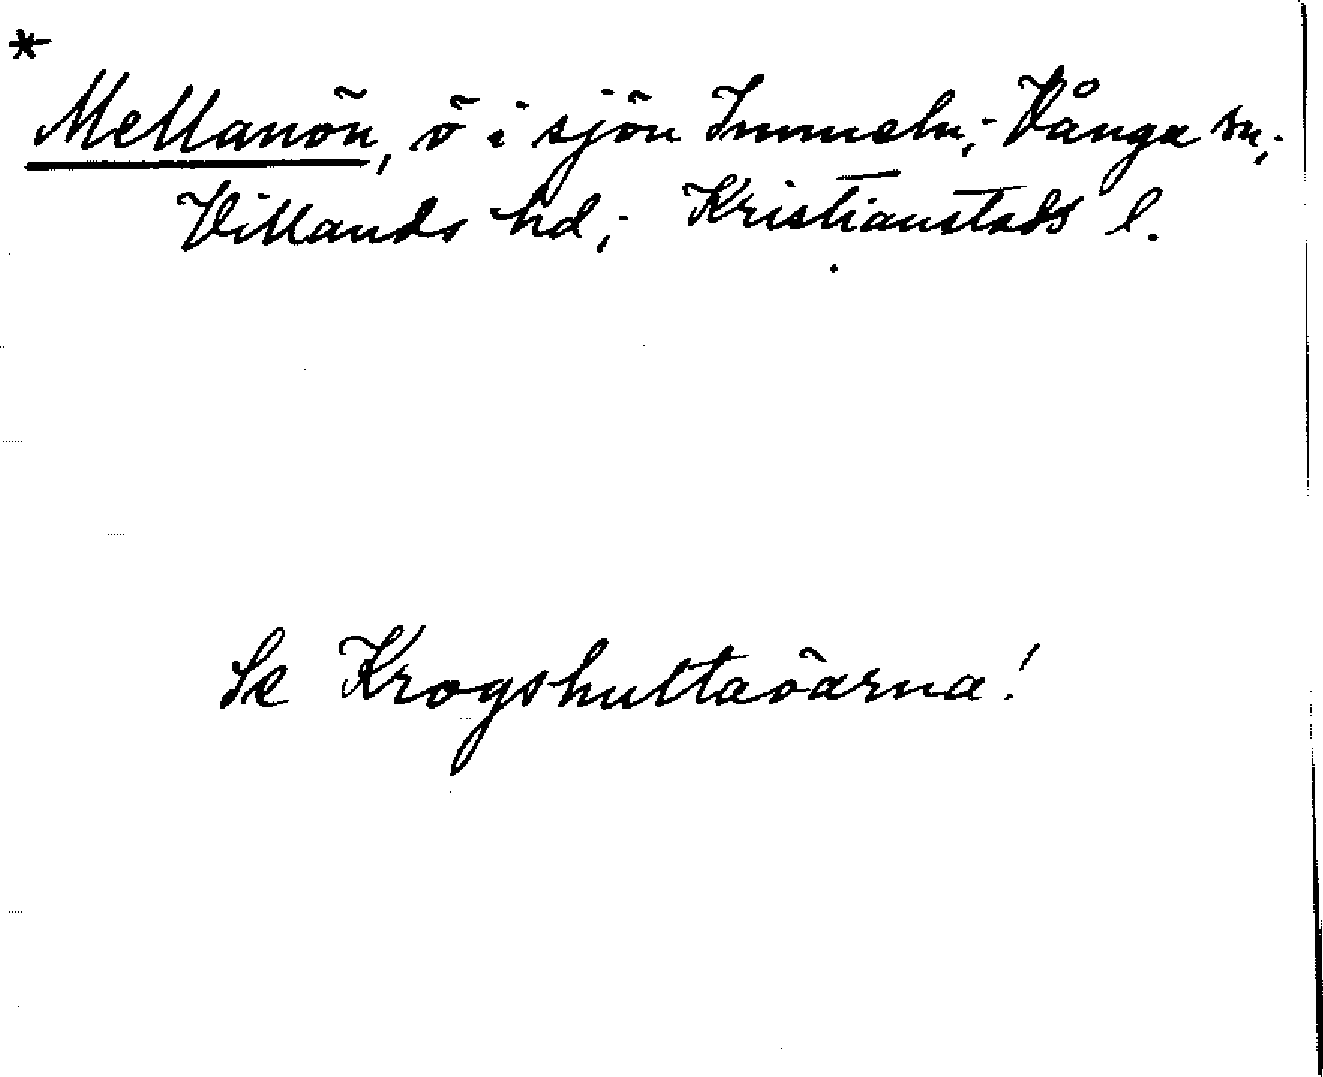 *
Mellanön, ö i sjön Immeln; Vånga sn;
Villands hd; Kristianstads l.
Se Krogshultaöarna!